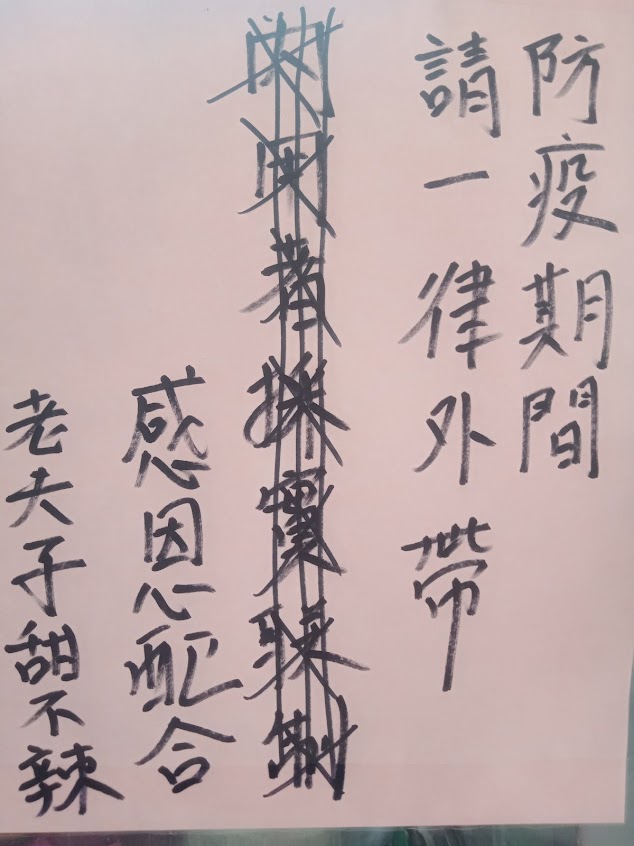 防疫期間
請一律外帶
感恩配合
老夫子甜不辣